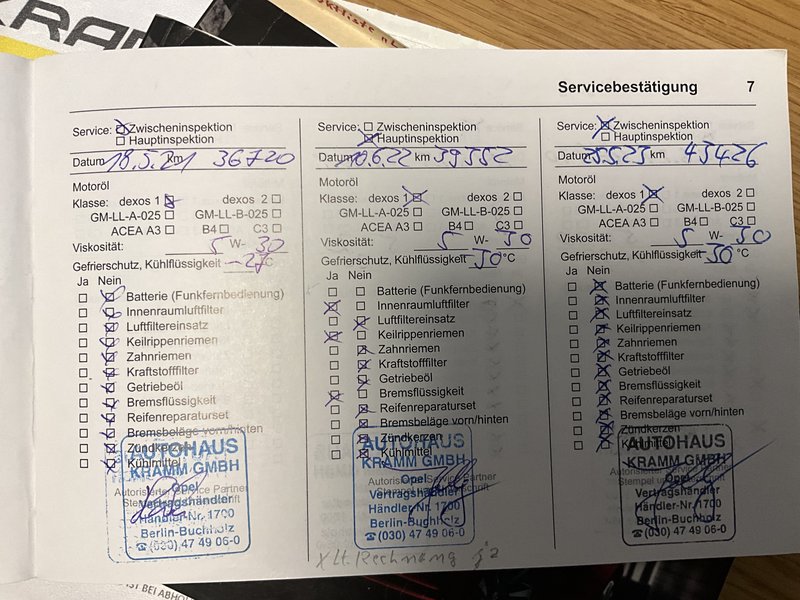 KRA
Servicebestätigung 7
Service: Zwischeninspektion
Hauptinspektion
Datum 18.5.21 km 36720
Motoröl
Klasse: dexos 1 dexos 2
GM-LL-A-025 GM-LL-B-025
ACEA A3 B4 C3
Viskosität: 5 W- 30
Gefrierschutz, Kühlflüssigkeit -27 °C
Ja Nein
Batterie (Funkfernbedienung)
Innenraumluftfilter
Luftfiltereinsatz
Keilrippenriemen
Zahnriemen
Kraftstofffilter
Getriebeöl
Bremsflüssigkeit
Reifenreparaturset
Bremsbeläge vorn/hinten
Zündkerzen
Kühlmittel
Autorisierter Service Partner
Stempel und Unterschrift
AUTOHAUS
KRAMM GMBH
Opel
Vertragshändler
Händler-Nr. 1700
Berlin-Buchholz
☎(030) 47 49 06-0
Service: Zwischeninspektion
Hauptinspektion
Datum 10.6.22 km 39352
Motoröl
Klasse: dexos 1 dexos 2
GM-LL-A-025 GM-LL-B-025
ACEA A3 B4 C3
Viskosität: 5 W- 30
Gefrierschutz, Kühlflüssigkeit 30 °C
Ja Nein
Batterie (Funkfernbedienung)
Innenraumluftfilter
Luftfiltereinsatz
Keilrippenriemen
Zahnriemen
Kraftstofffilter
Getriebeöl
Bremsflüssigkeit
Reifenreparaturset
Bremsbeläge vorn/hinten
Zündkerzen
Kühlmittel
Autorisierter Service Partner
AUTOHAUS
KRAMM GMBH
Opel
Vertragshändler
Händler-Nr. 1700
Berlin-Buchholz
☎(030) 47 49 06-0
x lt. Rechnung
Service: Zwischeninspektion
Hauptinspektion
Datum 5.23 km 43426
Motoröl
Klasse: dexos 1 dexos 2
GM-LL-A-025 GM-LL-B-025
ACEA A3 B4 C3
Viskosität: 5 W- 30
Gefrierschutz, Kühlflüssigkeit 30 °C
Ja Nein
Batterie (Funkfernbedienung)
Innenraumluftfilter
Luftfiltereinsatz
Keilrippenriemen
Zahnriemen
Kraftstofffilter
Getriebeöl
Bremsflüssigkeit
Reifenreparaturset
Bremsbeläge vorn/hinten
Zündkerzen
Kühlmittel
AUTOHAUS
KRAMM GMBH
Opel
Vertragshändler
Händler-Nr. 1700
Berlin-Buchholz
☎(030) 47 49 06-0
IST BEI ABHOL